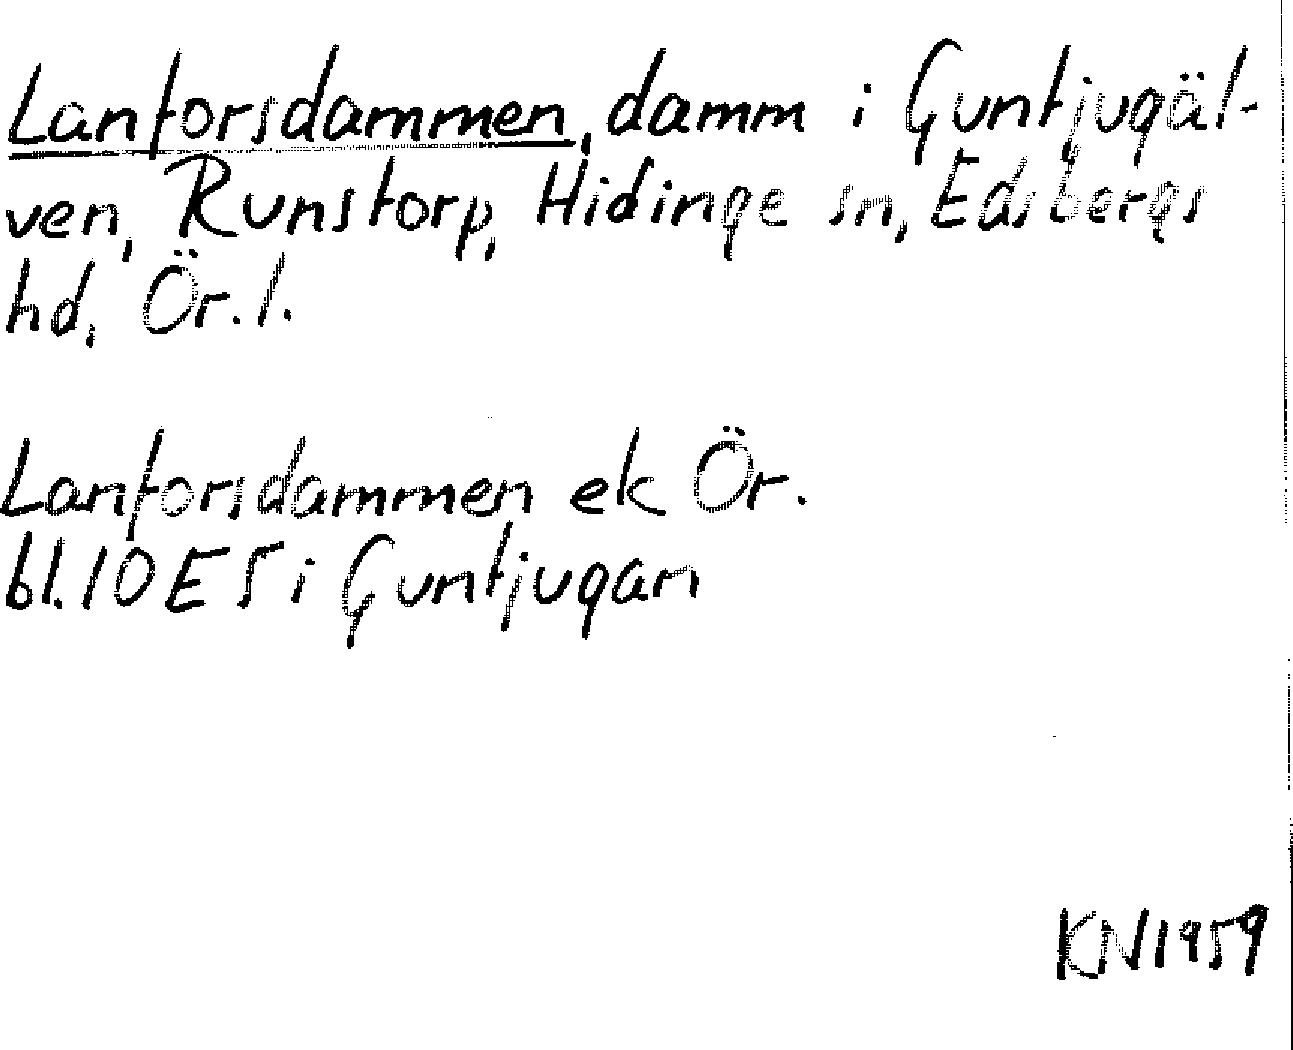 Lanforsdammen, damm i Guntjugäl-
ven, Runstorp, Hidinge sn, Edsbergs
hd, Ör. l.
Lanforsdammen ek Ör.
bl. 10 E 5 i Guntjugan
KN 1959